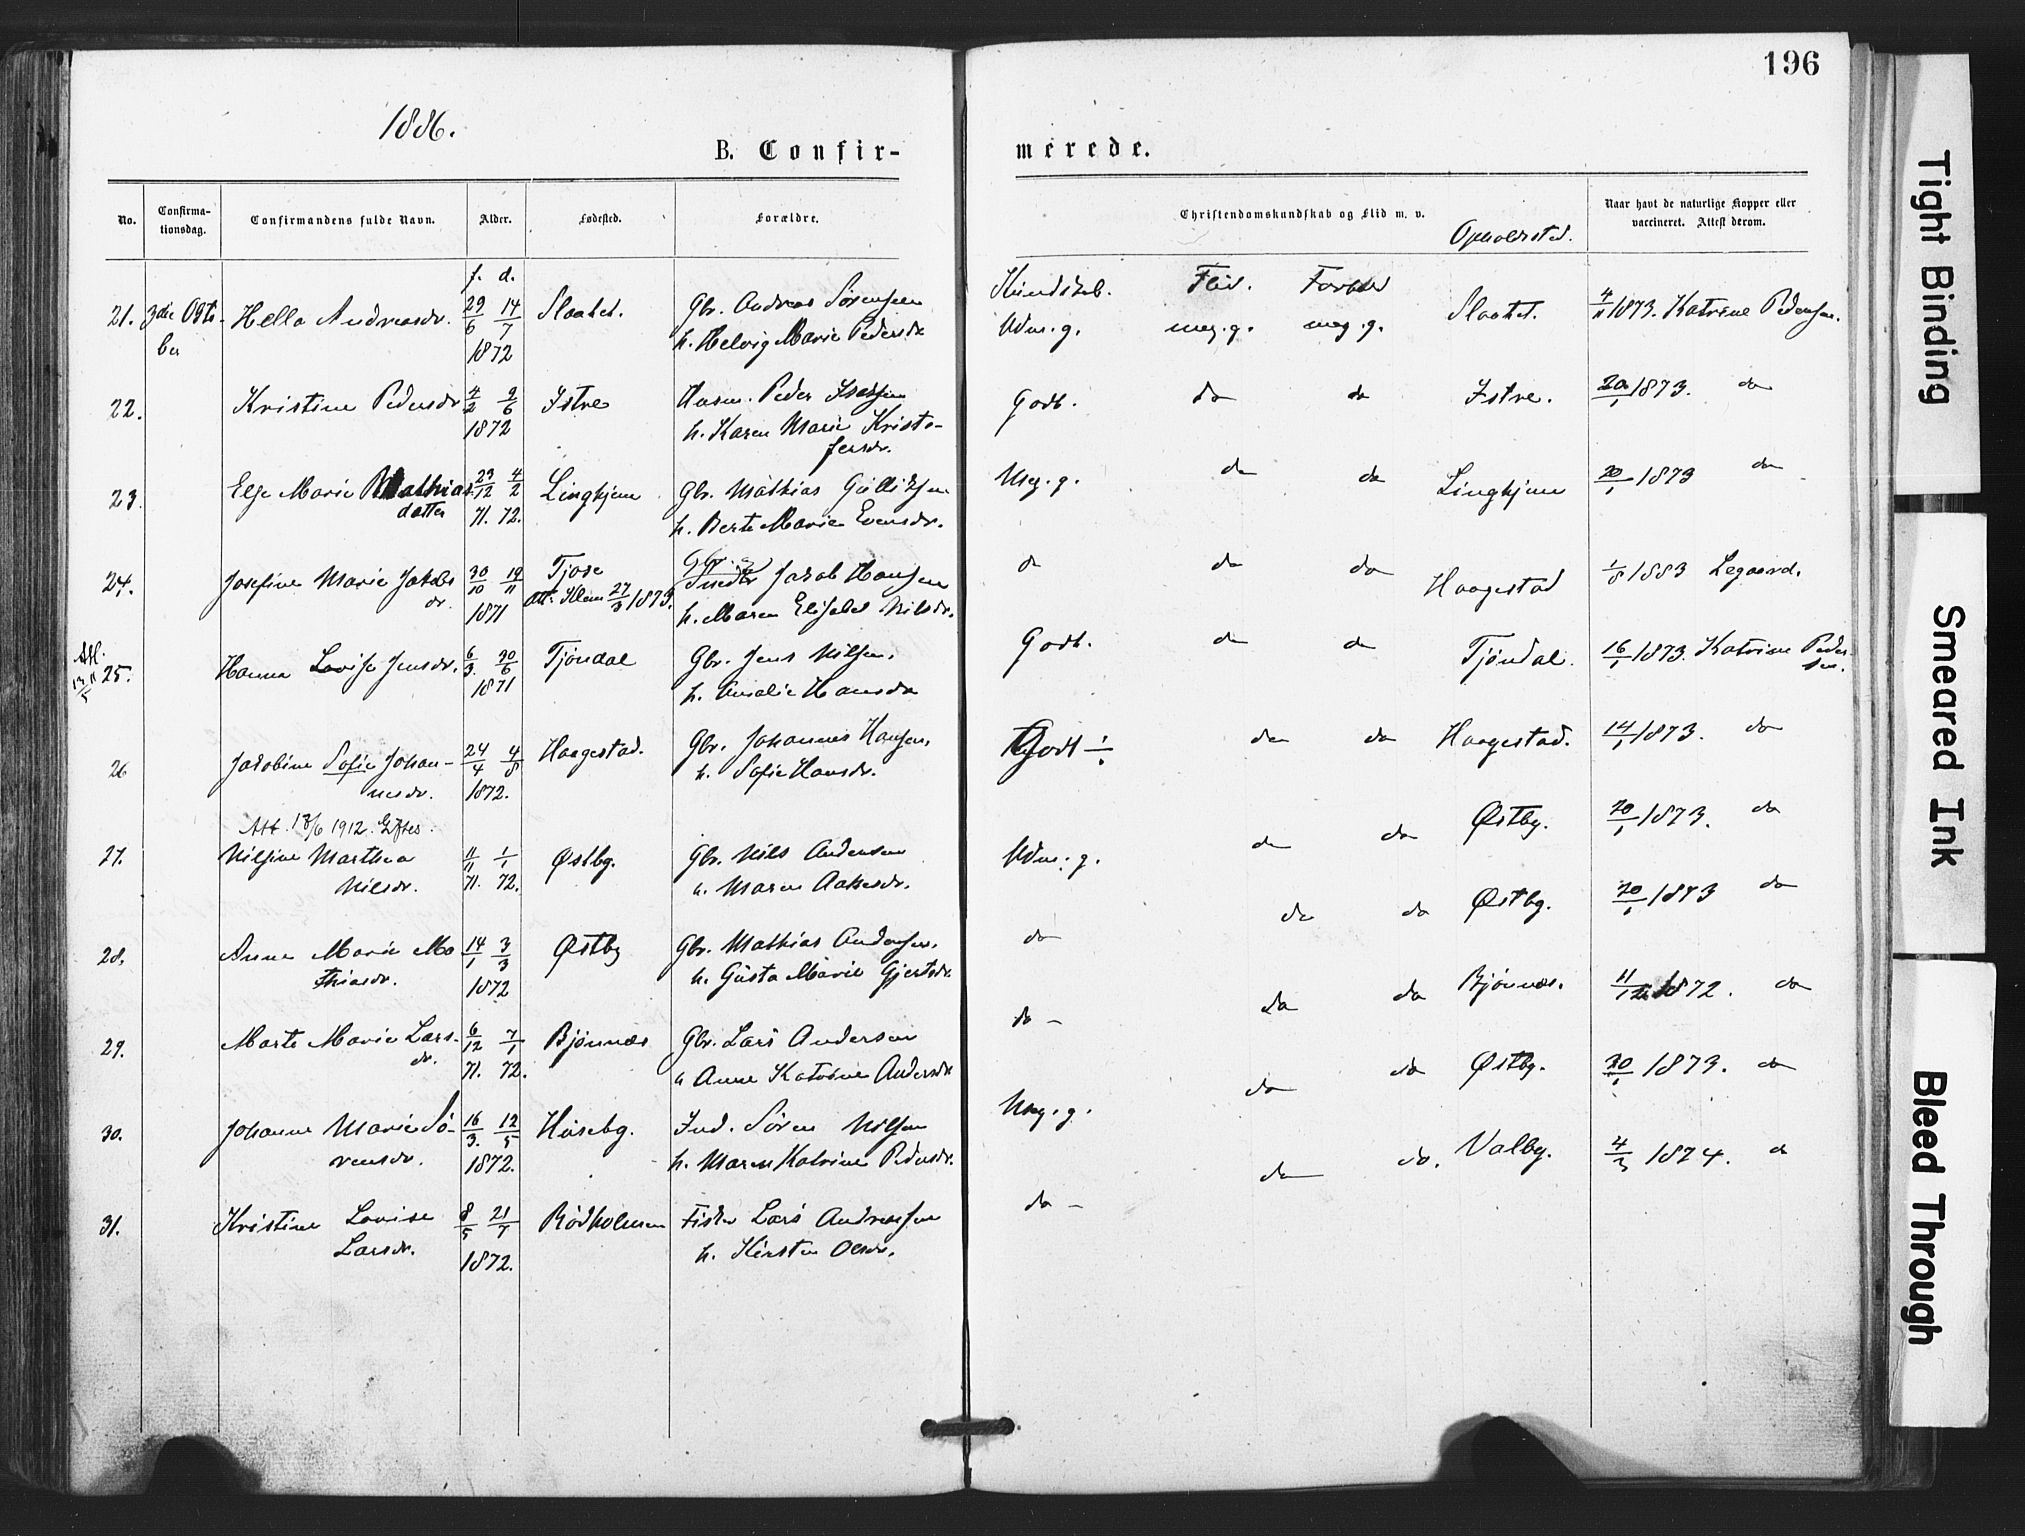 196
1886.
B. Confir-
merede.
No.
Confirma-
tionsdag.
Confirmandens fulde Navn.
Alder.
Fødested.
Forældre.
Christendomskundskab og Flid m. v.
Opholdssted.
Naar havt de naturlige Kopper eller
vaccineret. Attest derom.
f. d.
Kundskab. Flid. Forhold
21. 3die Octo- Hella Andreasdr. 29/6 14/7 Slaatet. Gbr. Andreas Sørensen Udm. g. meg. g. meg. g. Slaatet. 4/11 1873. Katrine Pedersen.
ber 1872 h. Helvig Marie Pedersdr
22. Kristine Pedersdr 4/2 9/6 Istre Husm. Peder Isaksen Godt. do do Istre. 20/1 1873. do
1872 h. Karen Marie Kristo-
fersdr.
23. Else Marie Mathias 29/12 4/2 Lingkjem Gbr. Mathias Gulliksen Meg. g. do do Lingkjem 20/1 1873 do
datter 71. 72. h. Berte Marie Evensdr.
24. Josefine Marie Jakobs 30/10 19/11 Tjose Smed Jakob Hansen do do do Haagestad 1/8 1883 Legaard.
dr. 1871 Att. Klem 27/3 1873. h. Maren Elisabet Nilsdr.
Att.
13/5 11 25. Hanna Lovise Jensdr. 6/3. 30/6 Tjøndal Gbr. Jens Nilsen. Godt. do do Tjøndal. 16/1 1873. Katrine Peder-
sen.
1871 h. Amalie Hansdr
26 Jakobine Sofie Johan- 24/4 4/8 Haagestad. Gbr. Johannes Hansen. Godt ÷ do do Haagestad. 14/1 1873. do
nesdr. 1872. h. Sofie Hansdr.
Att. 13/6 1912. Giftes.
27. Nilsine Marthea 11/11 1/1 Østby. Gbr. Nils Andersen Udm. g. do do Østby. 20/1 1873. do
Nilsdr. 71. 72. h. Maren Aakesdr.
28. Anne Marie Ma 14/1 3/3 Østby Gbr. Mathias Andersen. do do do Østby. 20/1 1873 do
thiasdr. 1872 h. Gusta Marie Gjertsdr
29. Marte Marie Lars- 6/12 7/1 Bjønnæs Gbr. Lars Andersen do - do do Bjønnæs. 11/12 1872. do
dr. 71. 72. h Anne Katrine Andersdr
30. Johanne Marie Sø- 16/3. 12/5 Huseby. Ind. Søren Nilsen Meg. g. do do Østby. 20/1 1873. do
rensdr. 1872. h. Maren Katrine Pedersdr.
31. Kristine Lovise 8/5 21/7 Rødholmen Fisker Lars Andreassen do - do do. Valby. 4/3 1874. do
Larsdr. 1872. h. Kirsten Olsdr.
Tight Binding
Smeared Ink
Bleed Through